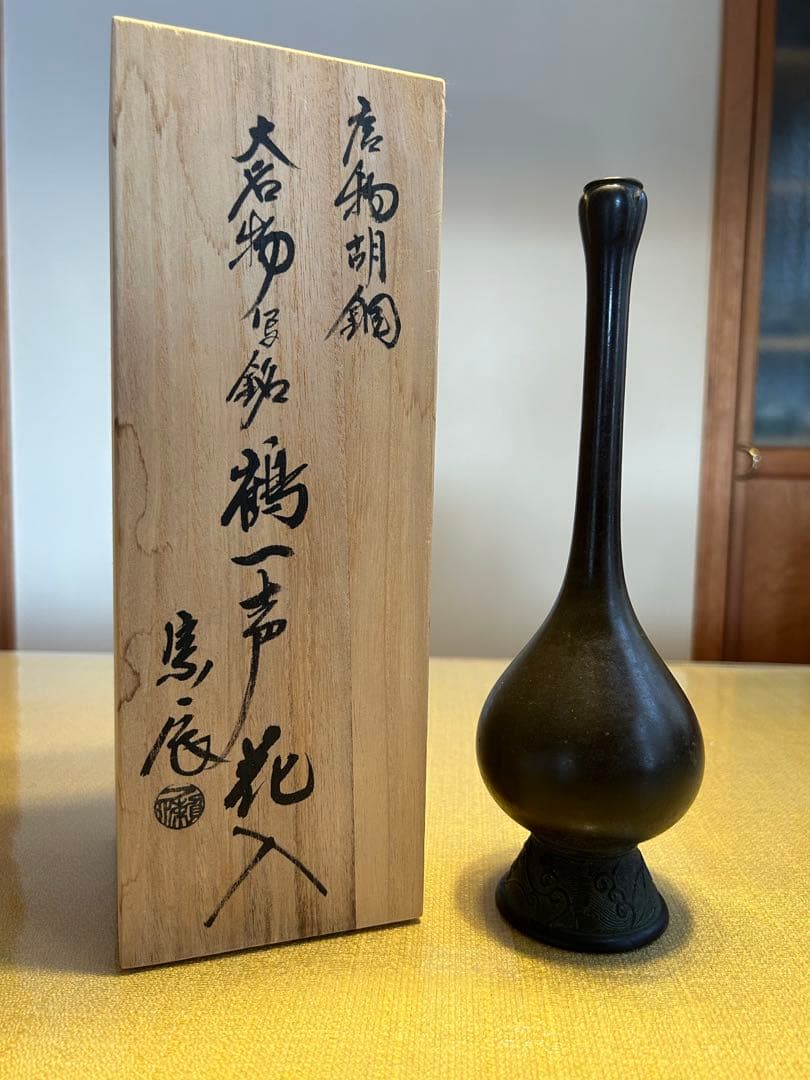 唐物胡銅
大名物写銘鶴一声花入
宗辰